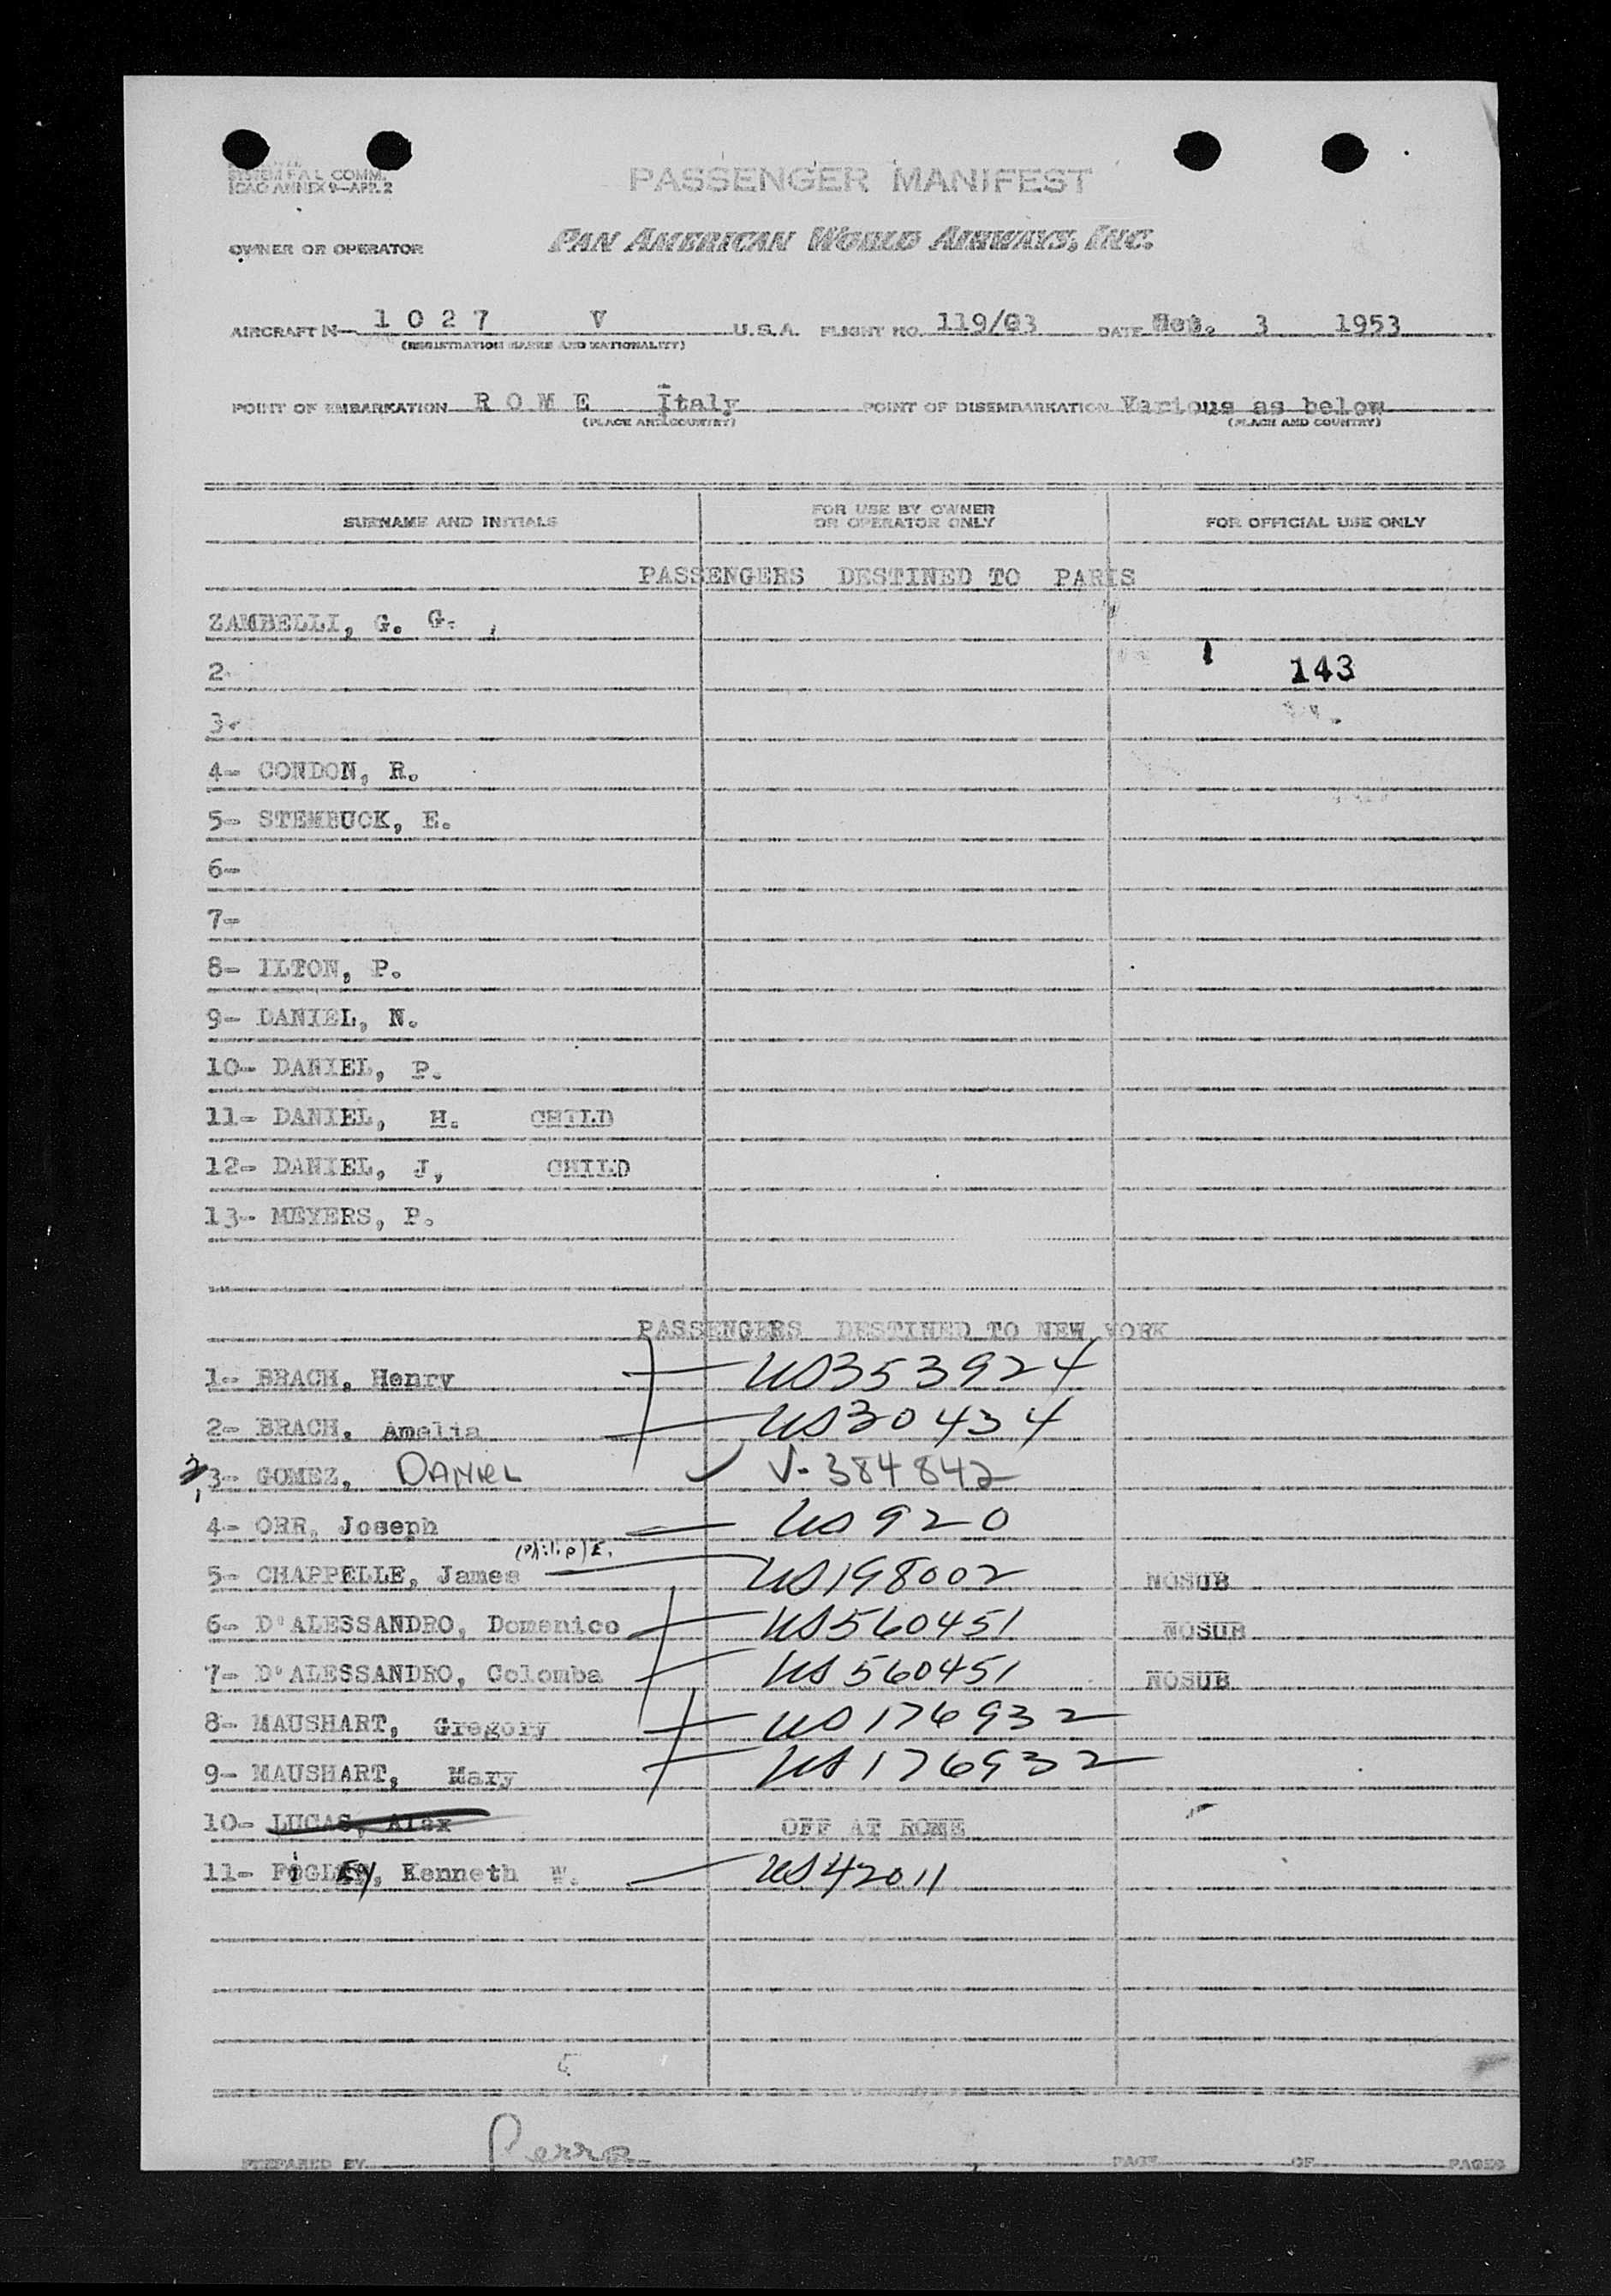 SYSTEM F.A.L. COMM.
ICAO ANNEX 9—APP. 2
PASSENGER MANIFEST
OWNER OR OPERATOR PAN AMERICAN WORLD AIRWAYS, INC.
AIRCRAFT N— 1 0 2 7 V U.S.A. FLIGHT NO. 119/03 DATE 3 1953
(REGISTRATION MARKS AND NATIONALITY)
POINT OF EMBARKATION R O M E Italy POINT OF DISEMBARKATION Various as below
(PLACE AND COUNTRY) (PLACE AND COUNTRY)
SURNAME AND INITIALS FOR USE BY OWNER OR OPERATOR ONLY FOR OFFICIAL USE ONLY
PASSENGERS DESTINED TO PARIS
ZAMBELLI, G. G. ,
2- 143
3-
4- CONDON, R.
5- STEMBUCK, E.
6-
7-
8- ILTON, P.
9- DANIEL, N.
10- DANIEL, P.
11- DANIEL, H. CHILD
12- DANIEL, J, CHILD
13- MEYERS, P.
PASSENGERS DESTINED TO NEW YORK
1- BRACH, Henry US353924
2- BRACH, Amalia US30434
3- GOMEZ, DANIEL V-384842
4- ORR, Joseph US920
(Philip) E.
5- CHAPPELLE, James US198002 NOSUB
6- D'ALESSANDRO, Domenico US560451 NOSUB
7- D'ALESSANDRO, Colomba US560451 NOSUB
8- MAUSHART, Gregory US176932
9- MAUSHART, Mary US176932
10- LUCAS, Alex OFF AT ROME
11- FIGLEY, Kenneth W. US42011
PREPARED BY Perro PAGE OF PAGES